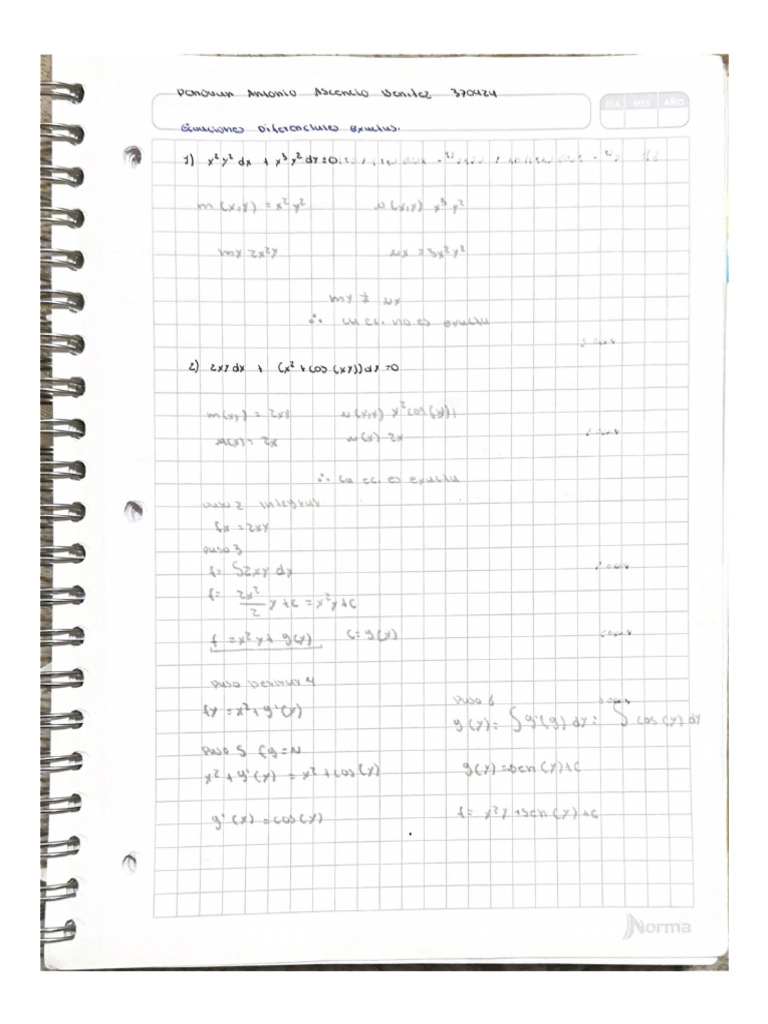 Donovan Antonio Ascencio Benitez 370424
DÍA MES AÑO
Ecuaciones Diferenciales exactas.
1) x²y² dx + x³y² dy = 0
m(x,y) = x²y² N(x,y) x³y²
my 2x²y Nx = 3x²y²
my ≠ Nx
∴ la ec. no es exacta
2) 2xy dx + (x² + cos (xy)) dy = 0
m(x,y) = 2xy N(x,y) x² cos(y)
M(x) = 2x N(x) 2x
∴ La ec. es exacta
paso 2 integrar
fx = 2xy
paso 3
f = ∫2xy dy
f = 2x²/2 y + c = x²y + c
f = x²y + g(x) c = g(x)
paso Derivar 4
fy = x² + g'(y)
paso 5 fy = N
x² + g'(y) = x² + cos(y)
g'(x) = cos(y)
paso 6
g(y) = ∫ g'(y) dy = ∫ cos (y) dy
g(y) = sen (y) + c
f = x²y + sen (y) + c
Norma